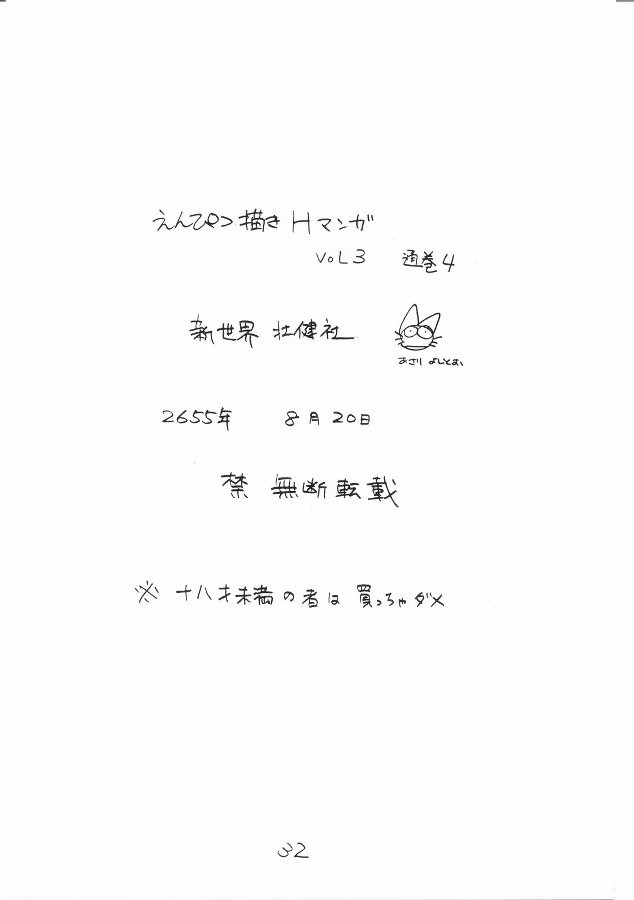 えんぴつ描きHマンガ
VOL3 通巻4
新世界 壮健社
あさりよしとお
2655年 8月20日
禁 無断転載
※ 十八才未満の者は買っちゃダメ
32